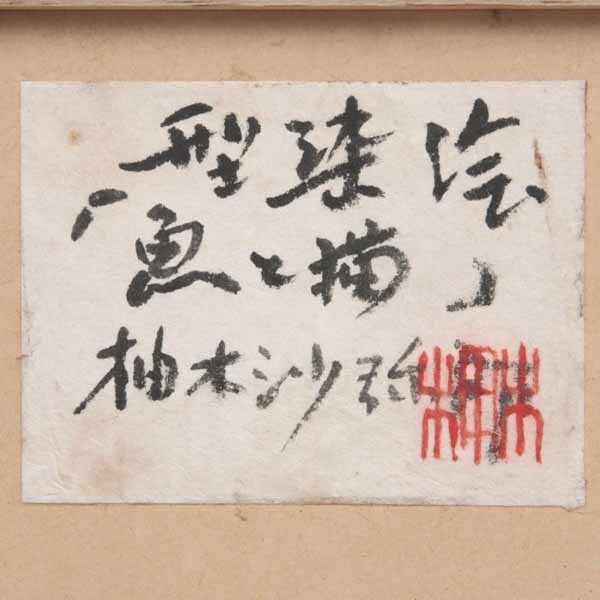 型染絵
「魚と猫」
柚木沙弥郎
柚木